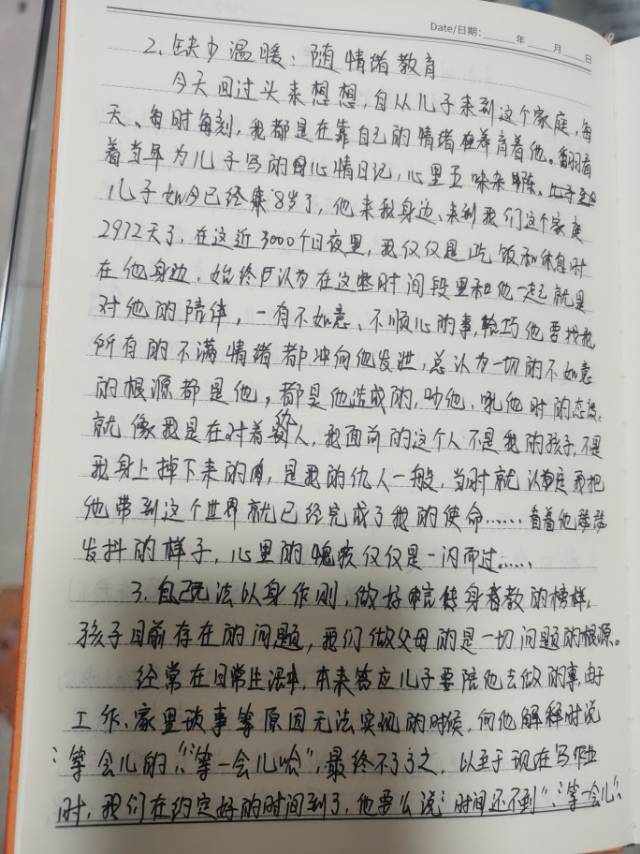 Date/日期: 年 月 日
2、缺少温暖：随情绪教育
今天回过头来想想，自从儿子来到这个家庭，每
天、每时每刻，我都是在靠自己的情绪在养育着他。翻看
着当年为儿子写的心情日记，心里五味杂陈。
儿子如今已经8岁了，他来我身边、来到我们这个家庭
2972天了，在这近3000个日夜里，我仅仅是吃饭和休息时
在他身边，始终认为在这些时间段里和他一起就是
对他的陪伴，一有不如意、不顺心的事，恰巧他要找我
所有的不满情绪都冲向他发泄，总认为一切的不如意
的根源都是他，都是他造成的，吵他、吼他时的态度
就像我是在对着敌人，我面前的这个人不是我的孩子，不是
我身上掉下来的肉，是我的仇人一般，当时就认为把
他带到这个世界就已经完成了我的使命……看着他瑟瑟
发抖的样子，心里的愧疚仅仅是一闪而过……
3、自己无法以身作则，做好言传身教的榜样，
孩子目前存在的问题，我们做父母的是一切问题的根源。
经常在日常生活中，本来答应儿子要陪他去做的事，由于
工作、家里琐事等原因无法实现的时候，向他解释时说
“等会儿的”“等一会儿哈”，最终不了了之，以至于现在写作业
时，我们在约定好的时间到了，他要么说“时间还不到”、“等一会儿”